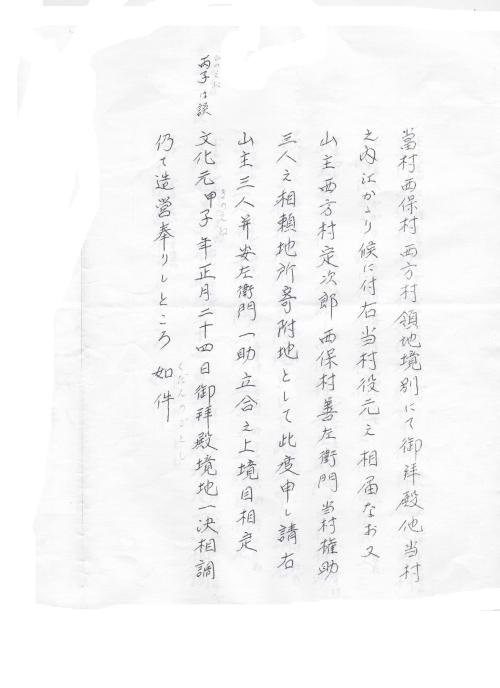 當村西保村西方村領地境別にて御拝殿他当村
之内江かゝり候に付右当村役元え相届なお又
山主西方村定次郎 西保村善左衛門当村権助
三人え相頼地所寄附地として此度申し請右
山主三人并安左衛門一助立合之上境目相定
丙子は誤
ひのえね
文化元甲子年正月二十四日御拝殿境地一決相調
きのえね
仍て造営奉りしところ 如件
くだんのごとし